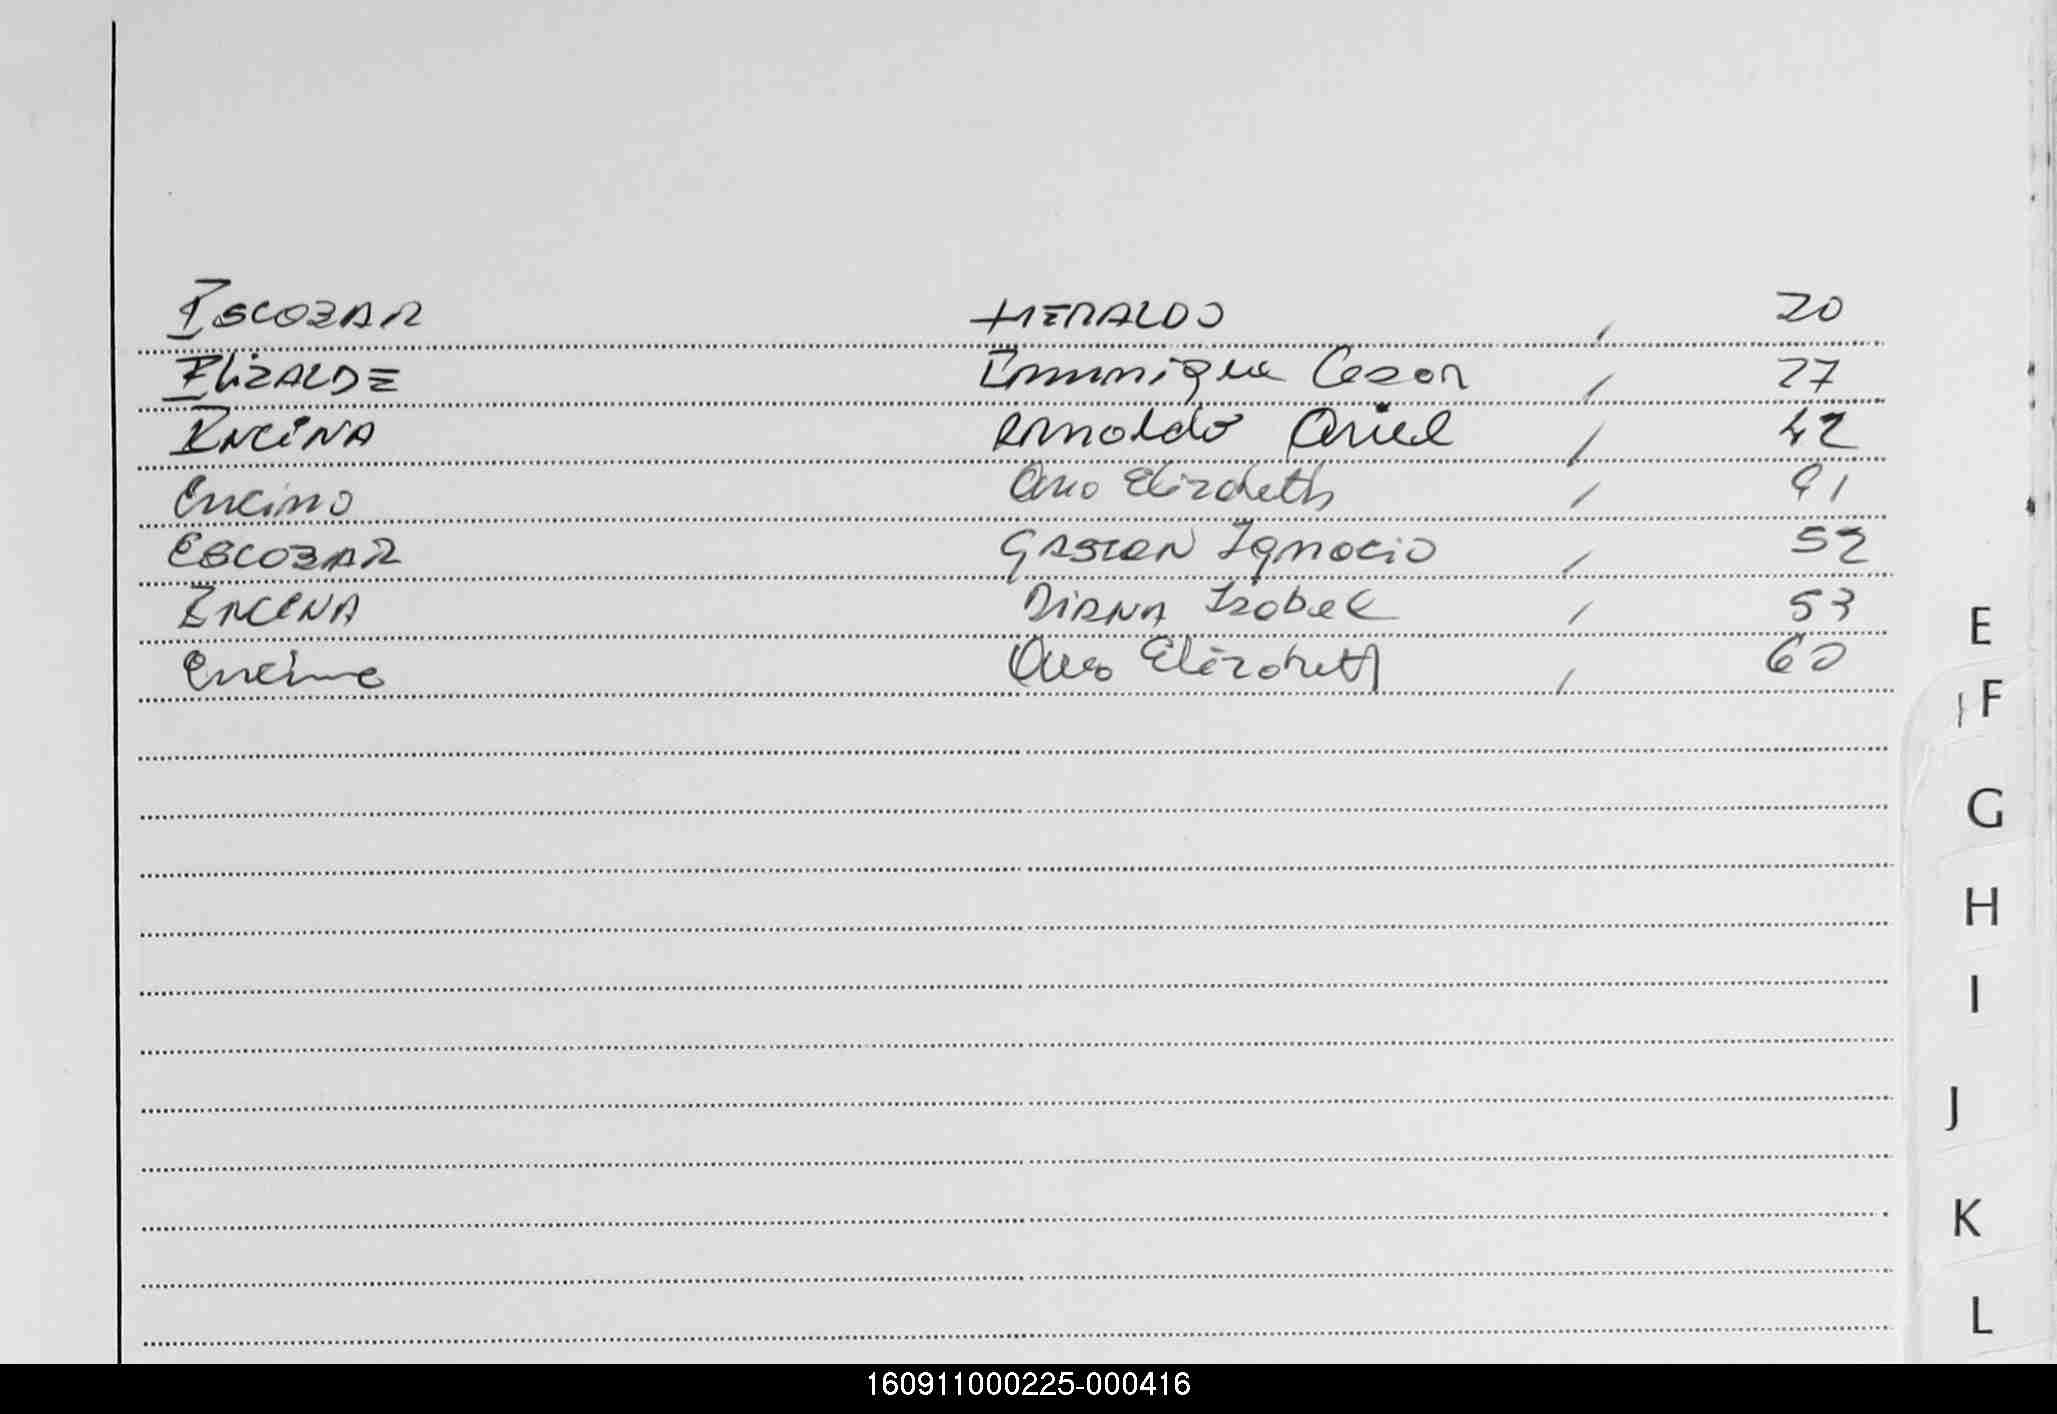 Escobar Heraldo , 20
Elizalde Enmnique Cesar , 27
Encina Arnoldo Ariel , 42
Encina Ana Elizabeth , 91
Escobar Gaston Ignacio , 52
Encina Diana Isabel , 53
Encina Ana Elizabeth , 60
E
F
G
H
I
J
K
L
160911000225-000416